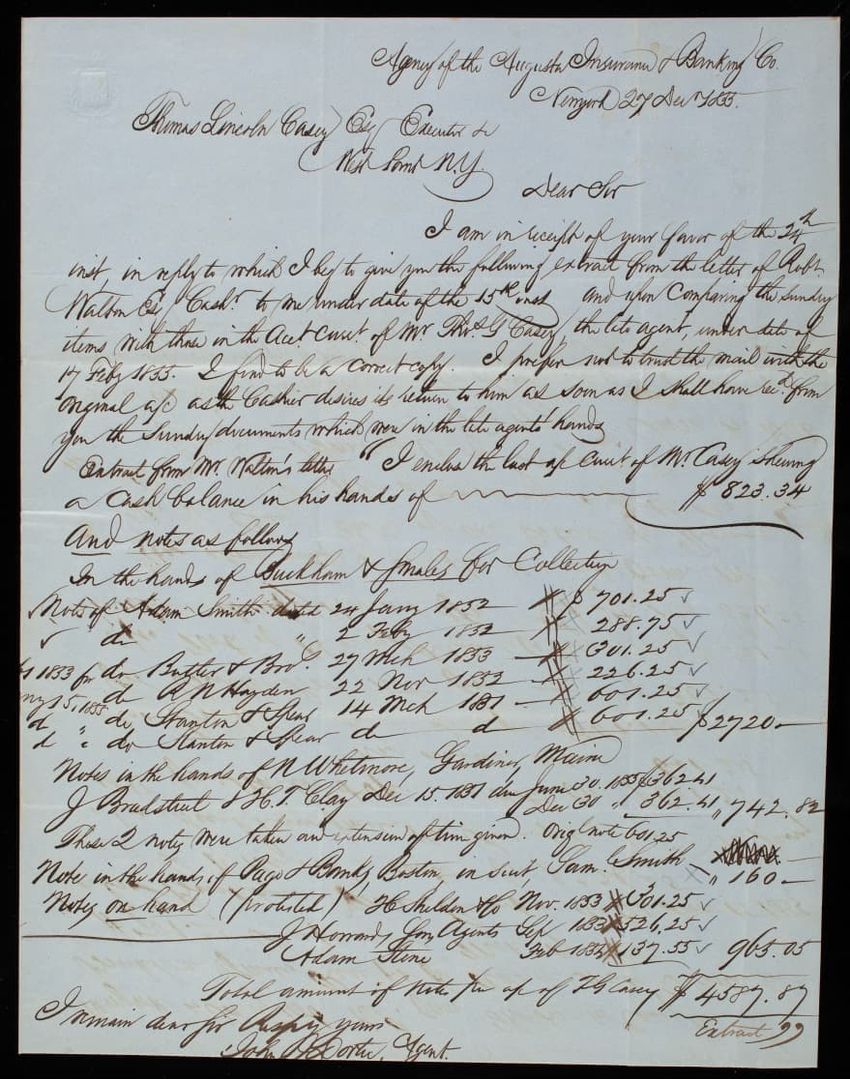 Agency of the Augusta Insurance & Banking Co.
New York 27 Decr 1855.
Thomas Lincoln Casey Esq Executor &c
West Point N.Y.
Dear Sir
I am in receipt of your favor of the 24th
inst, in reply to which I beg to give you the following extract from the letter of Robt
Walton Esq Cashr to me under date of the 15th inst and upon Comparing the sundry
items with those in the Acct Curt of Mr Thos G Casey, the late agent, under date of
17 Feby 1855. I find to be a correct copy. I prefer not to trust the mail with the
original a/c as the Cashier desires its return to him as soon as I shall have recd from
you the Sundry documents which were in the late agents' hands
Extract from Mr. Walton's letter "I enclose the last a/c Curt of Mr Casey shewing
a Cash balance in his hands of $ 823.34
And notes as follows
In the hands of Buckham & Smales for Collection
Note of Adam Smith dated 24 Jany 1852 $ 701.25
do 2 Feby 1852 288.75
1853 for do Butler & Bro. 27 Mch 1853 301.25
do R N Hayden 22 Nov 1852 226.25
d do Stanton & Spear 14 Mch 1851 601.25
d " do Stanton & Spear do d 601.25 $2720
Notes in the hands of N Whitmore, Gardiner, Maine
J Bradstreet & H. T. Clay Dec 15. 1851 due June 30. 1855 $362.41
Dec 30 " 362.41 " 742.82
These 2 notes were taken and extension of time given. Orig note 601.25
Note in the hands of Page & Banks, Boston, in suit, Sam. Smith
" 160
Notes on hand (protested) H Sheldon & Co Nov. 1853 301.25
J Howard, Gen Agents Sep 1853 526.25
Adam Stine Feb 1854 137.55 965.05
Total amount of notes per a/c of T G Casey $ 4587.87
Extract "
I remain dear Sir Respy yours
John Agent.